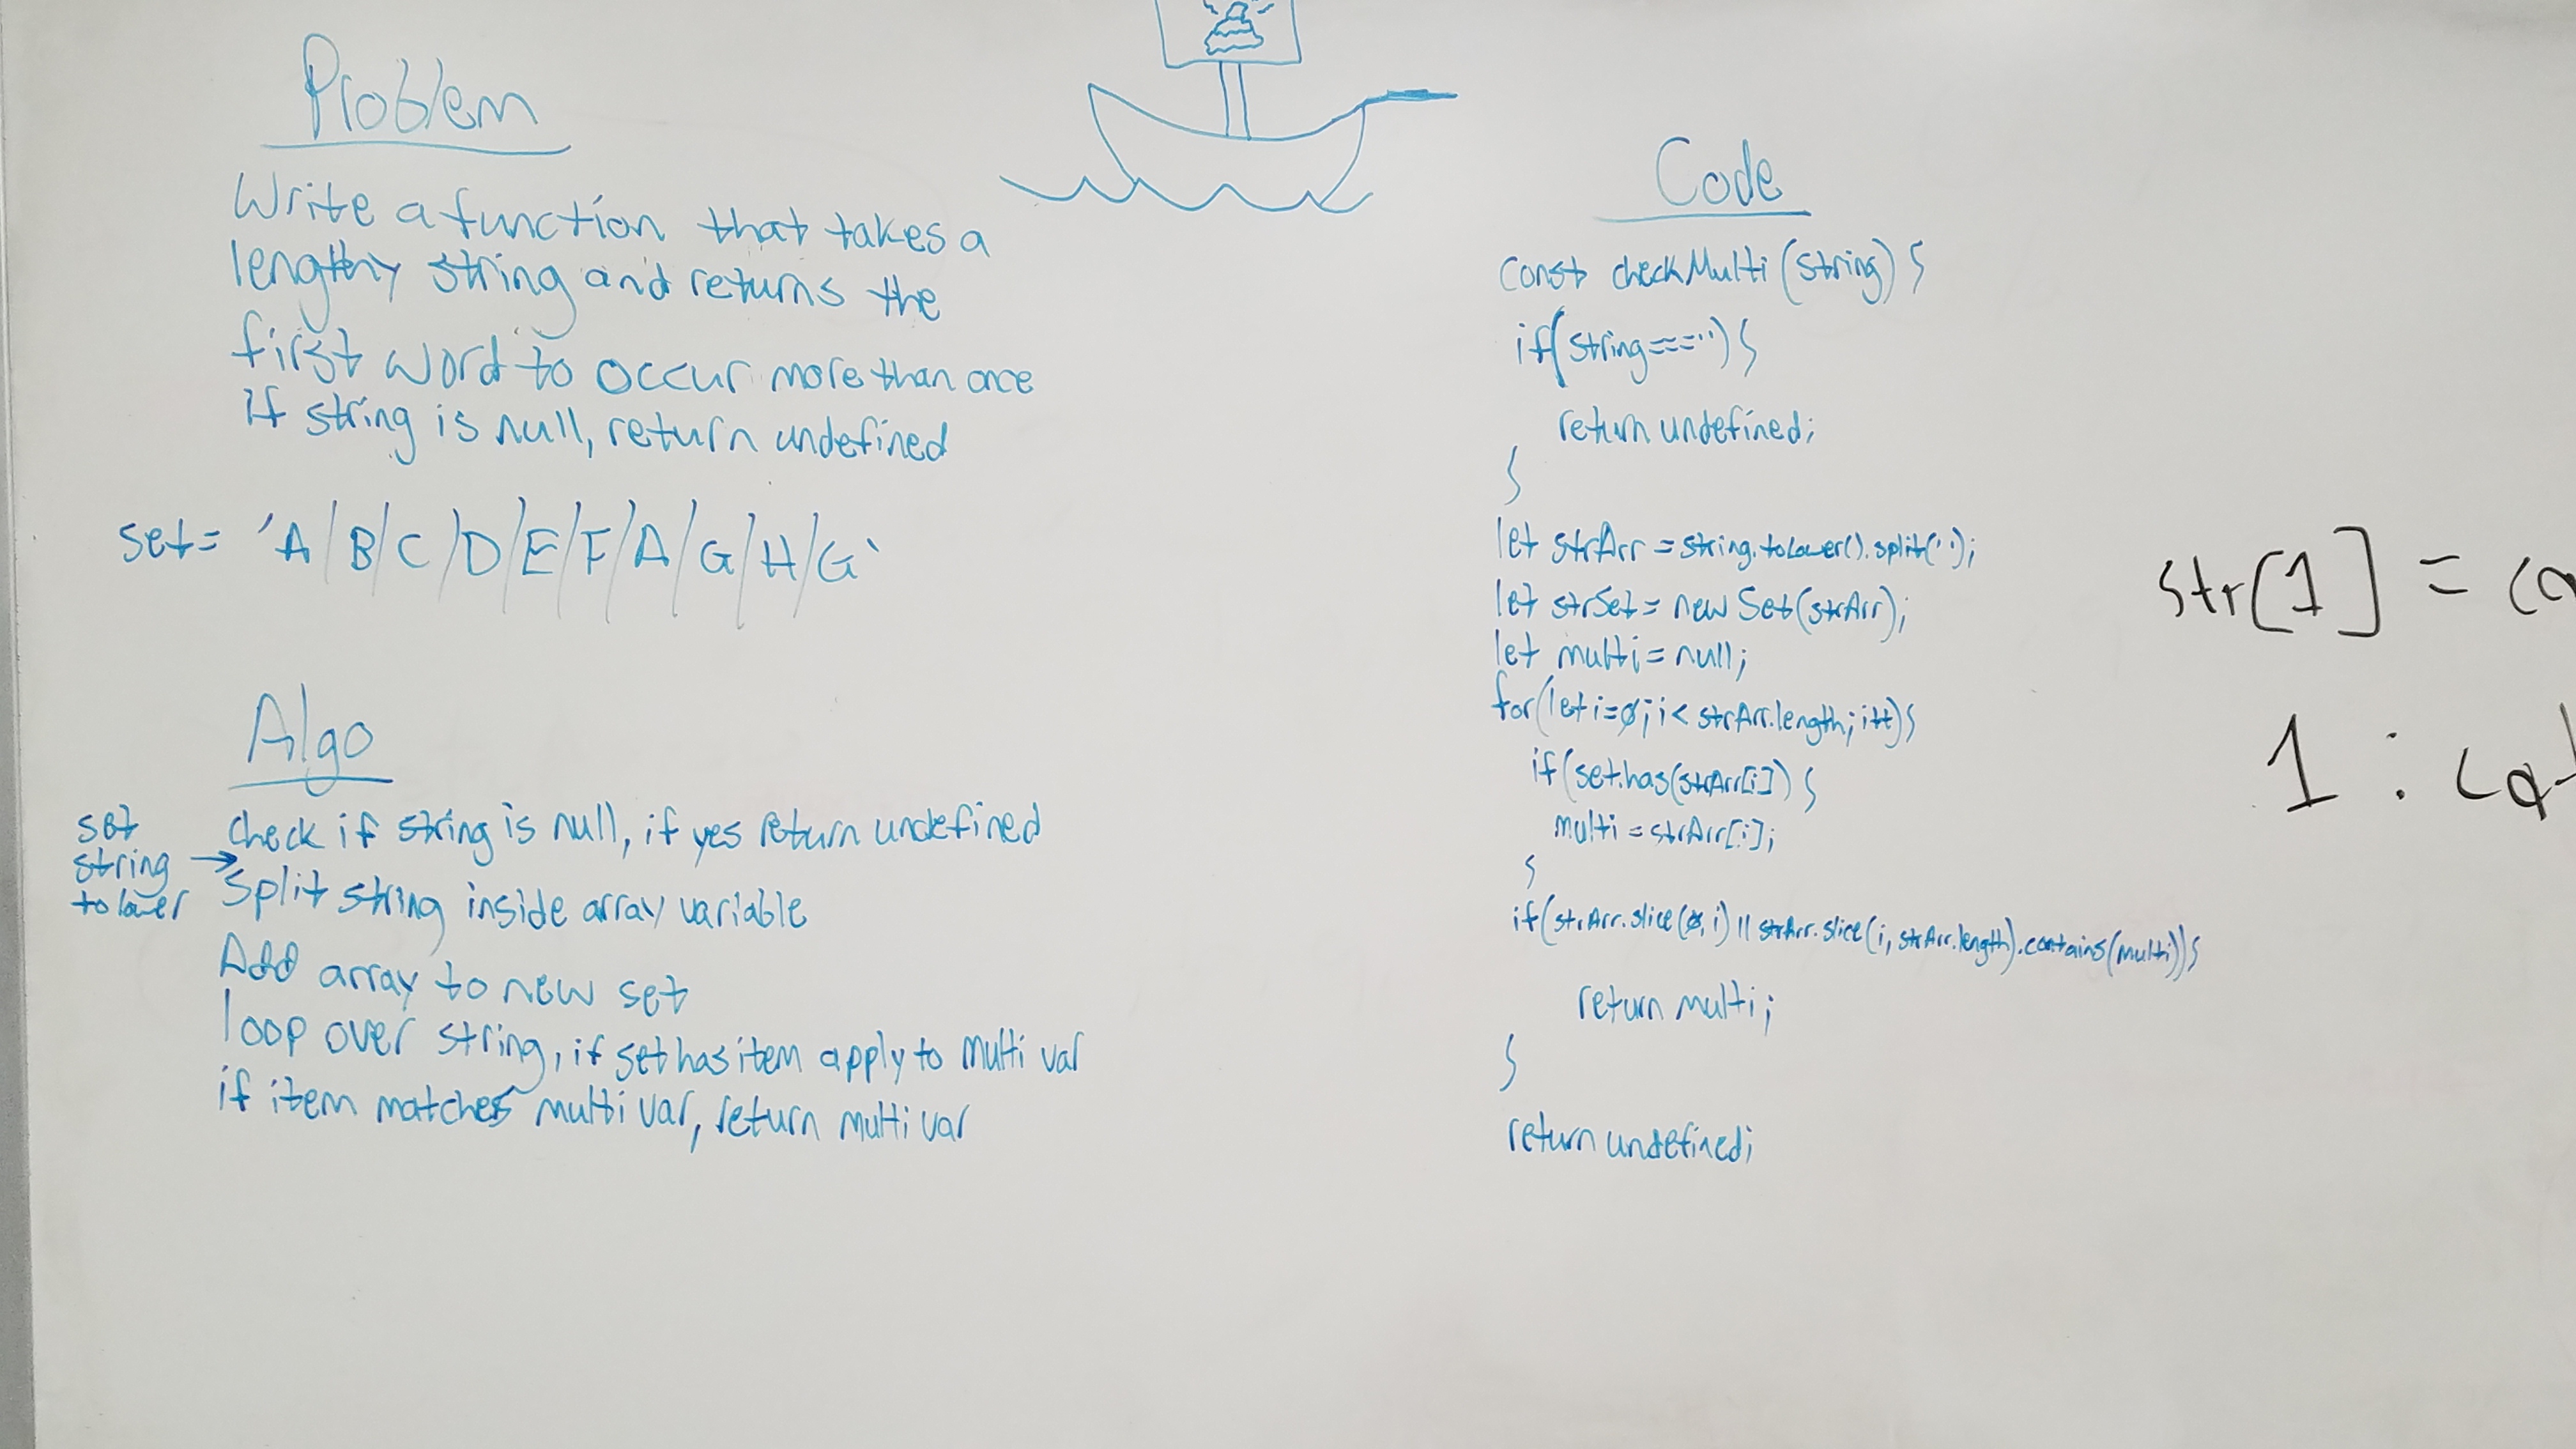 Problem
Write a function that takes a
lengthy string and returns the
first word to occur more than once
If string is null, return undefined
set= 'A/B/C/D/E/F/A/G/H/G`
Algo
set
string →
to lower
check if string is null, if yes return undefined
Split string inside array variable
Add array to new set
loop over string, if set has item apply to multi var
if item matches multi var, return multi var
Code
const checkMulti (string) {
if(string==='') {
return undefined;
}
let strArr = string.toLower().split(' ');
let strSet = new Set(strArr);
let multi = null;
for(let i=0; i < strArr.length; i++) {
if (set.has(strArr[i]) {
multi = strArr[i];
}
if(strArr.slice(0, i) || strArr.slice(i, strArr.length).contains(multi)) {
return multi;
}
return undefined;
str[1] = ca
1 : cat